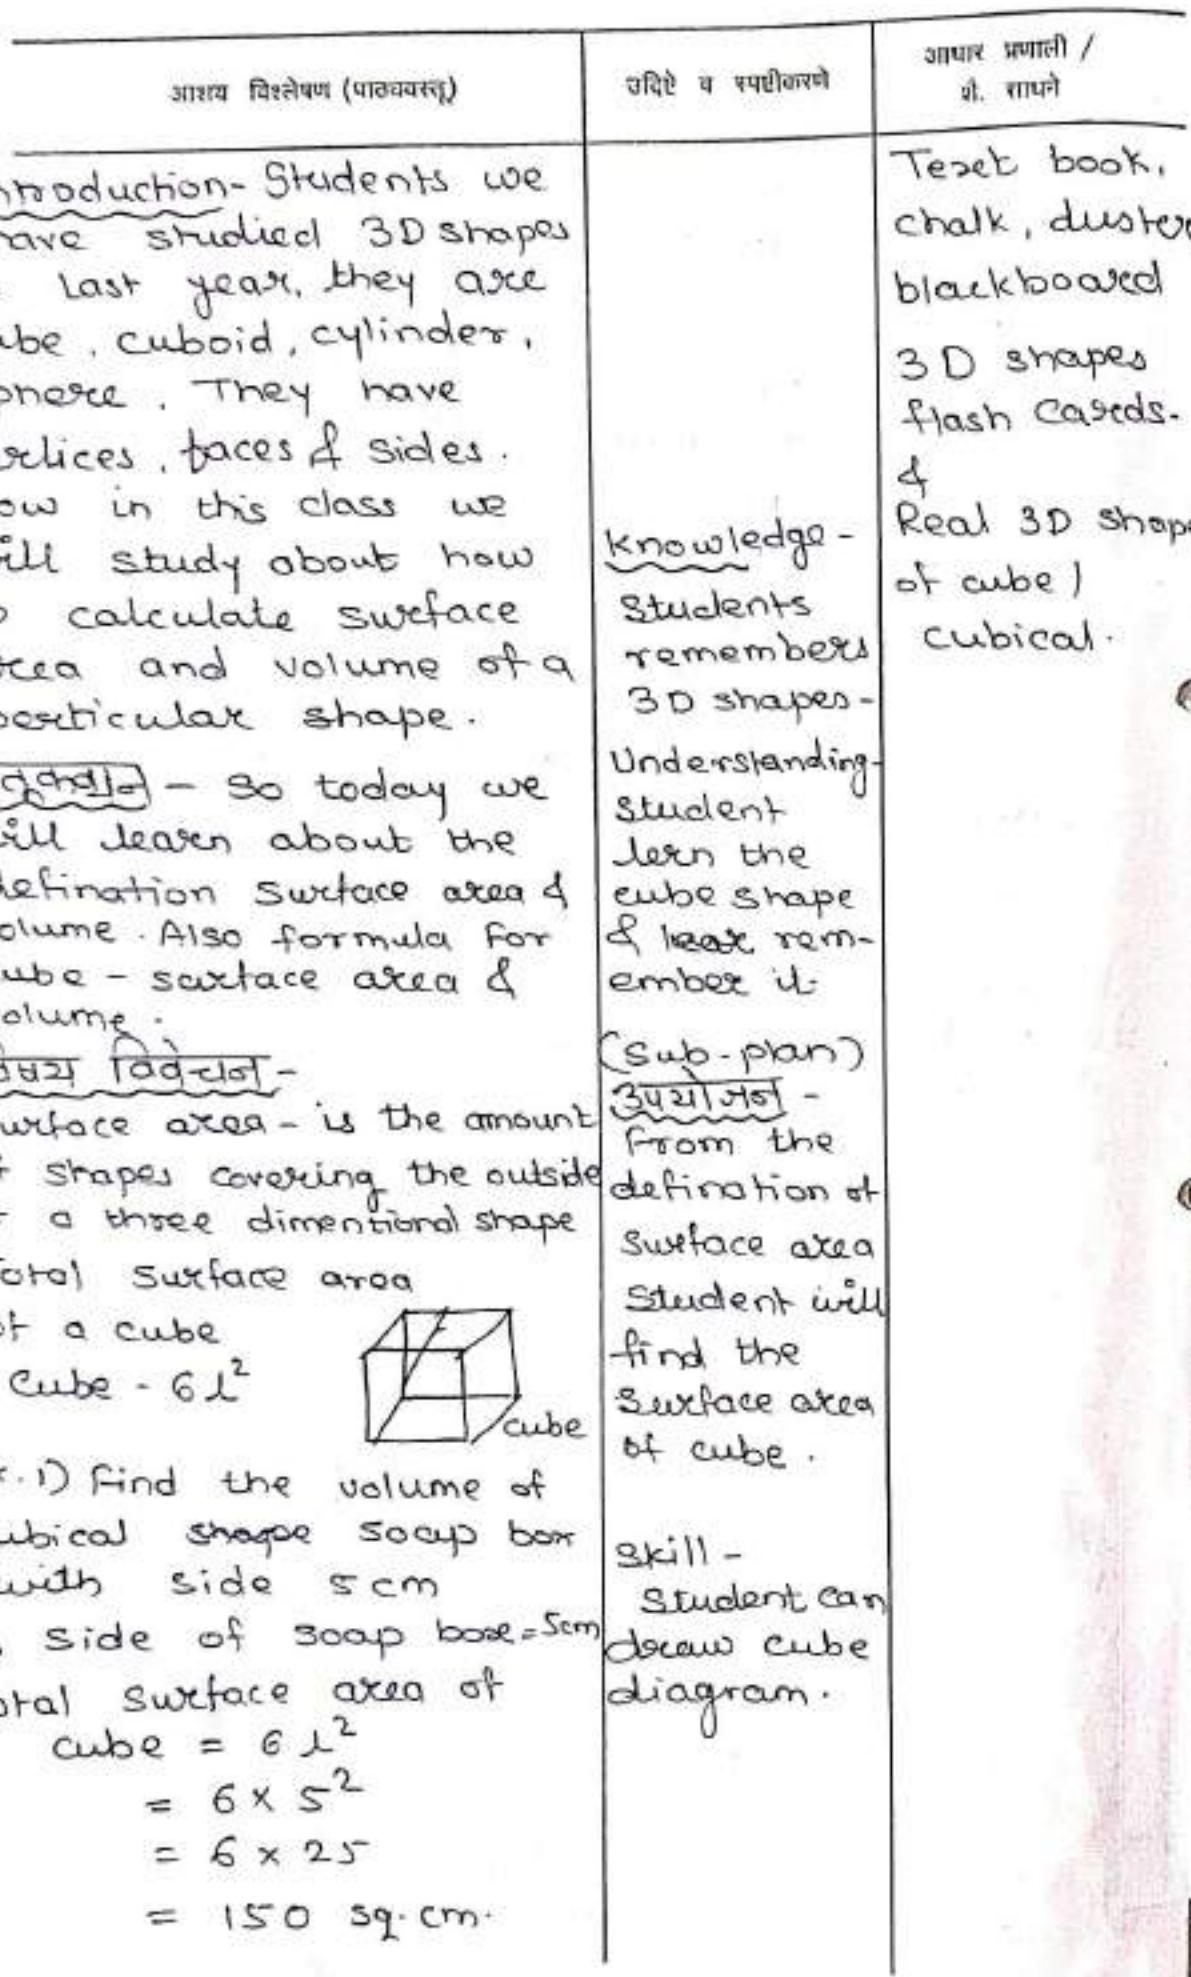 आशय विश्लेषण (पाठ्यवस्तू)
उदिष्टे व स्पष्टीकरणे
आधार प्रणाली /
शै. साधने
ntroduction- Students we
ave studied 3D shapes
Last year, they are
ube, cuboid, cylinder,
phere. They have
rtices, faces & sides.
ow in this class we
ill study about how
o calculate surface
rea and volume of a
perticular shape.
- So today we
ill learn about the
defination surface area &
olume. Also formula for
ube - sarface area &
olume.
विषय विवेचन -
urface area - is the amount
f shapes covering the outside
f a three dimentional shape
Total surface area
of a cube
cube - 6l²
cube
x.1) find the volume of
ubical shape soap box
with side 5 cm
side of soap box = 5cm
otal surface area of
cube = 6l²
= 6 x 5²
= 6 x 25
= 150 sq. cm.
Knowledge -
Students
remembers
3D shapes -
Understanding-
Student
lern the
cube shape
& rem-
ember it.
(Sub-plan)
उपयोजन -
From the
defination of
surface area
Student will
find the
Surface area
of cube.
Skill -
Student can
draw cube
diagram.
Text book,
chalk, duster
blackboard
3D shapes
flash cards.
&
Real 3D shape
of cube /
cubical.